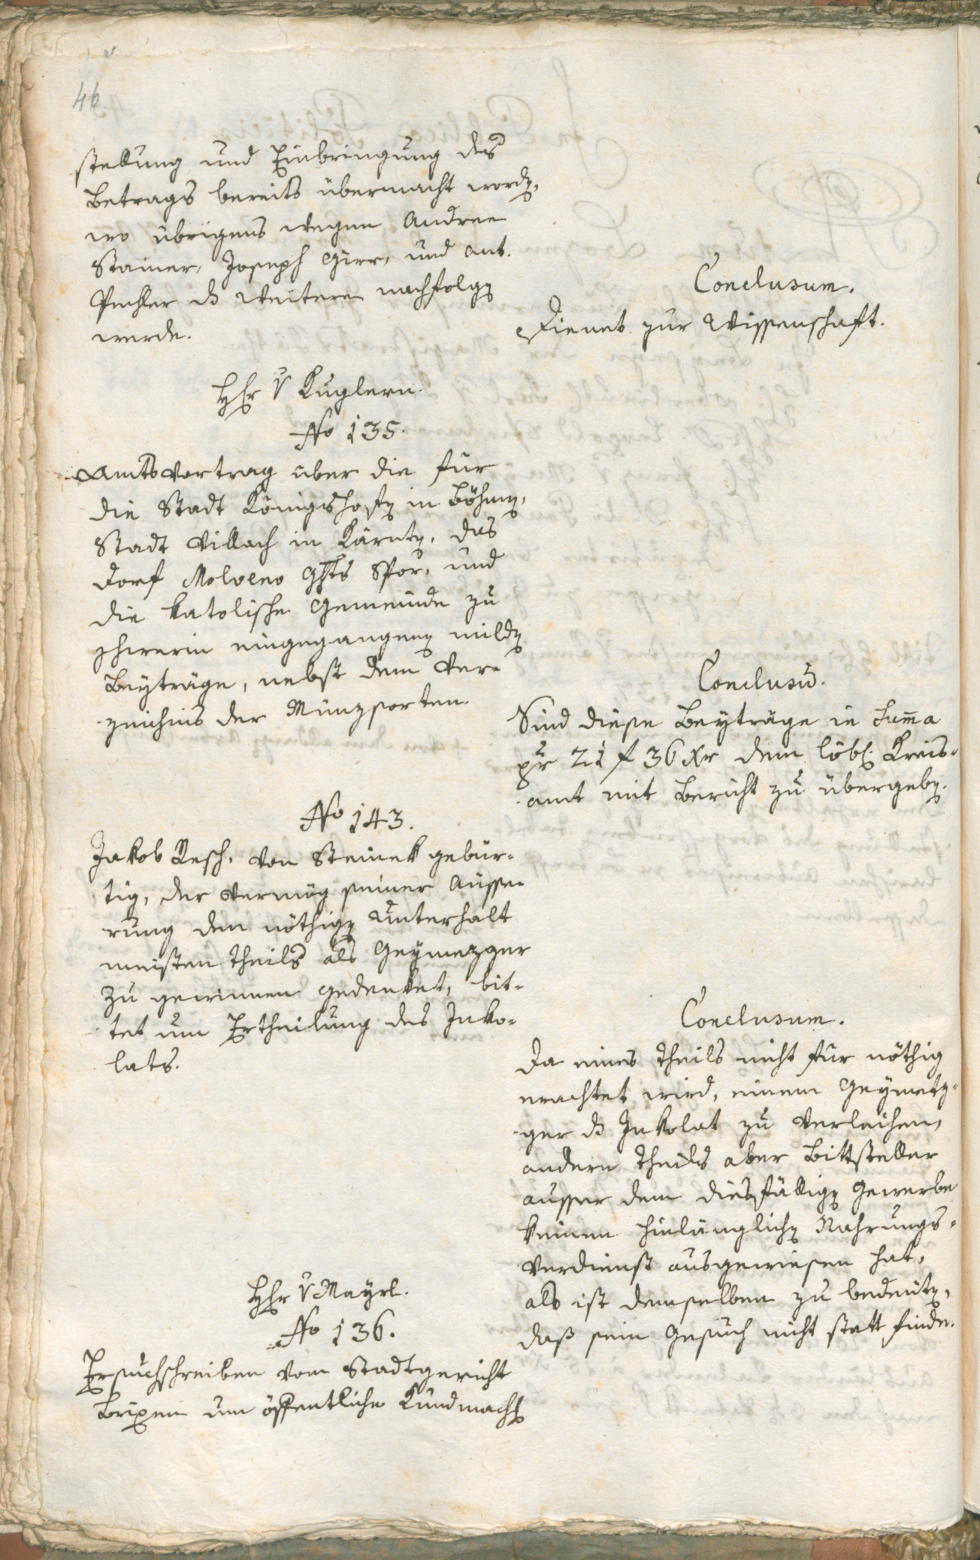 46
stellung und Einbringung des
Betrags bereits übermacht word[en],
wo übrigens wegen Andree
Stainer, Joseph Gürr, und Ant.
Pichler d[as] weitere nachfolg[en]
werde.
Conclusum.
Dienet zur Wissenschaft.
HHr v Kuglern.
No 135.
Amtsvortrag über die für
die Stadt Königshof[en] in Böhm[en],
Stadt Villach in Kärnt[en], das
Dorf Molveno Ghts Spor, und
die katolische Gemeinde zu
eingegangen[en] mild[en]
Beyträge, nebst dem Ver-
zeichnis der Münzsorten.
Conclusū.
Sind diese Beyträge in Sum̄a
pr 21 f 36 Xr dem löbl. Kreis-
amt mit Bericht zu übergeb[en].
No 143.
Jakob Resch, von Steinek gebür-
tig, der vermög seiner Äusse-
rung den nöthig[en] Unterhalt
meisten theils als Geymezger
zu gewinnen gedenket, bit-
tet um Ertheilung des Inko-
lats.
Conclusum.
Da eines theils nicht für nöthig
erachtet wird, einem Geymetz-
ger d[as] Inkolat zu verleihen,
andern theils aber Bittsteller
ausser dem diesfällig[en] Gewerbe
keinen hinlänglich[en] Nahrungs-
verdienst ausgewiesen hat,
als ist demselben zu bedeut[en],
daß sein Gesuch nicht statt finde.
HHr v Mayrl.
No 136.
Ersuchschreiben vom Stadtgericht
Brixen um öffentliche Kundmach[ung]